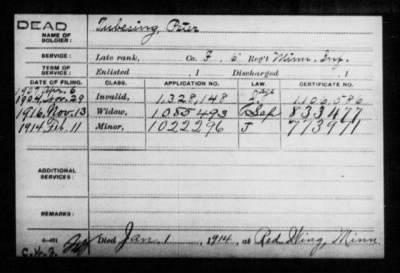 DEAD
NAME OF SOLDIER: Tubesing, Peter
SERVICE: Late rank, Co. F, 6 Reg't Minn. Inf.
TERM OF SERVICE: Enlisted , 1 Discharged , 1
DATE OF FILING. CLASS. APPLICATION NO. LAW. CERTIFICATE NO.
1904, 29 Invalid, 1,328,148 1,106,586
1916, Nov. 13 Widow, 1085493 Sep 833477
1914, Feb. 11 Minor, 1022296 J 773971
ADDITIONAL SERVICES:
REMARKS:
Died Jan. 1, 1914, at Red Wing, Minn.